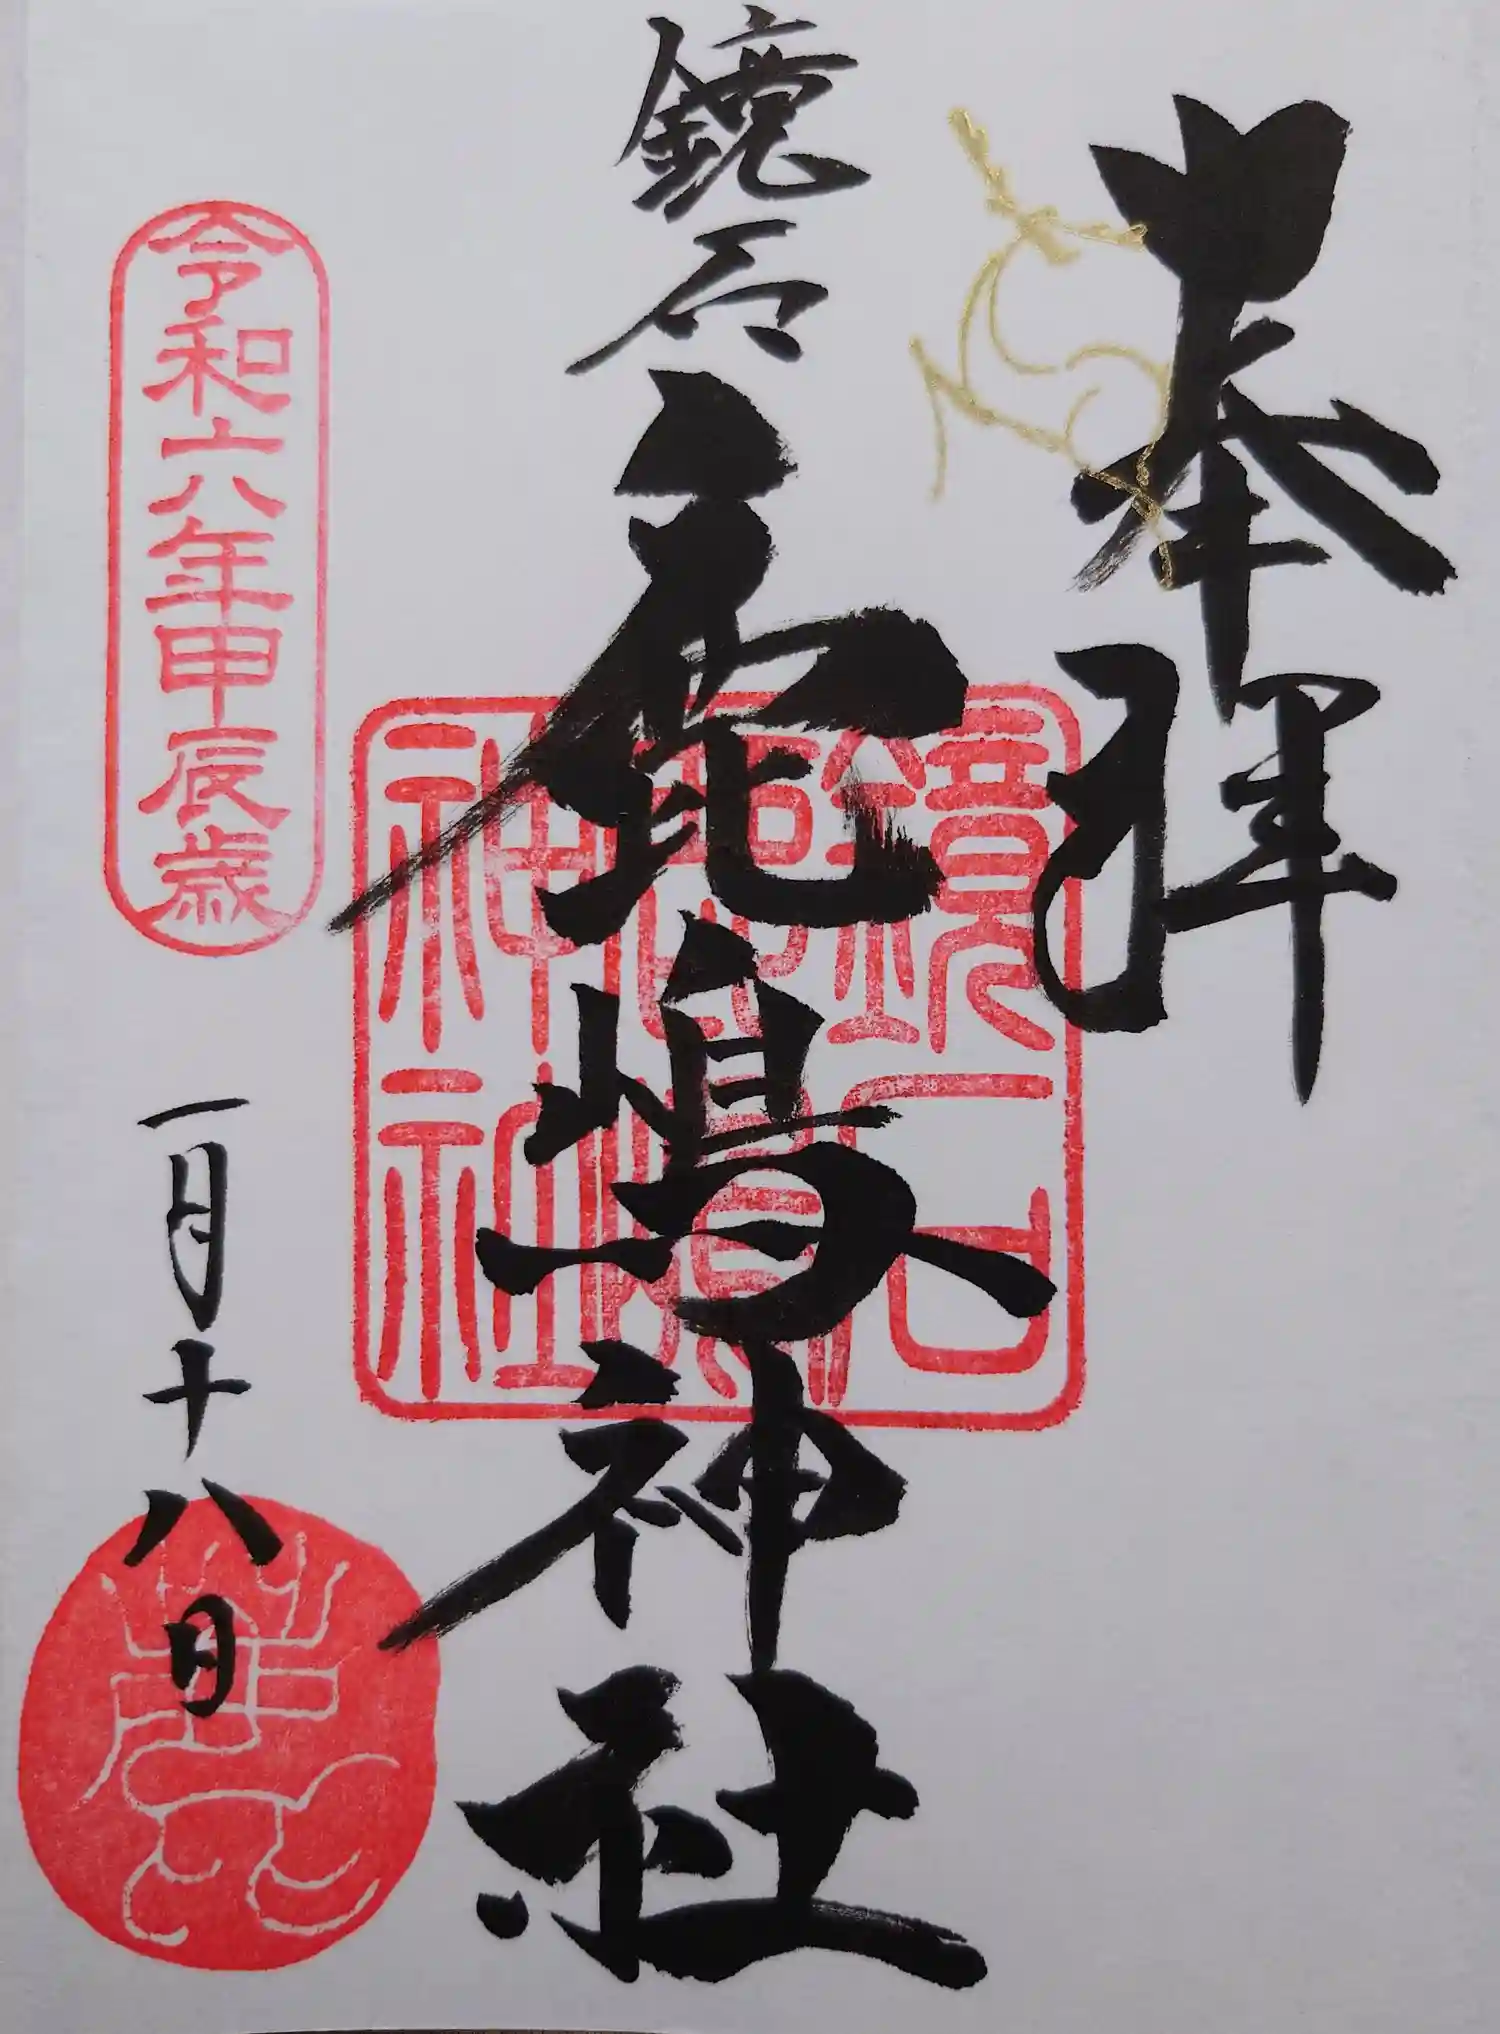 奉拝
鏡石鹿嶋神社
鏡石鹿嶋神社
令和六年甲辰歳
一月十八日